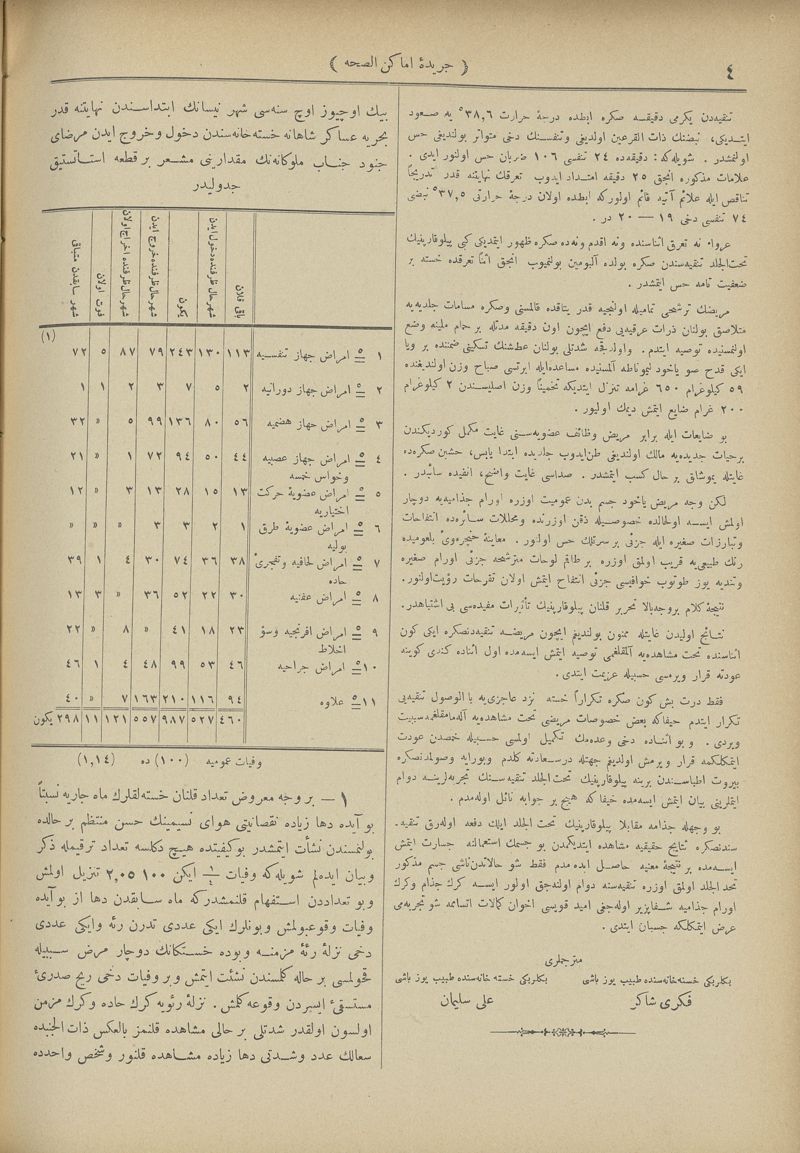 ٤
﴿ جريدۀ اماكن الصحه ﴾
تنقيه‌دن يكرمى دقيقه صكره ابطده درجۀ حرارت ٣٨,٦° يه صعود
ايتديكى، نبضنك ذات القرعين اولديغى وتنفسنك دخى متواتر بولنديغى حس
اولنمشدر . شويله‌كه : دقيقه‌ده ٢٤ تنفسى ١٠٦ ضربان حس اولنور ايدى .
علامات مذكوره انجق ٢٥ دقيقه امتداد ايدوب تعرقك نهايتنه قدر تدريجاً
تناقص ايله علائم آتيه قائم اولوركه ابطده اولان درجۀ حرارتى ٣٧,٥° نبضى
٧٤ تنفسى دخى ١٩ — ٢٠ در .
نه تعرق اثناسنده ونه اقدم ونه‌ده صكره ظهور ايتمديكى كبى پيلوقارپينك
تحت‌الجلد تنقيه‌سندن صكره بولده آلبومين بولنميوب انجق اثناً تعرقده خسته بر
ضعفيت تامه حس ايتمشدر .
مريضك ترشحى تماميله اولنجيه قدر يتاقده قالمسنى وصكره مسامات جلديه‌يه
متلاصق بولنان ذرات عرقيه‌يى دفع ايچون اون دقيقه مدتله بر حمام ملينه وضع
اولنمسنيده توصيه ايتدم . شدتلى بولنان عطشنك تسكينى ضمننده بر ويا
ايكى قدح صو ياخود ليموناطه آلمسنيده مساعده‌ايله ايرتسى صباح وزن اولنديغنده
٥٩ كيلوغرام ٦٥٠ غرامه تنزل ايتديكه تخميناً وزن اصليسندن ٢ كيلوغرام
٢٠٠ غرام ضايع ايتمش ديمك اوليور .
بو ضايعات ايله برابر مريض وظائف عضويه‌سنى غايت مكمل كورديكندن
برحيات جديده‌يه مالك اولنديغى ظن‌ايدوب جلديده ابتدا يابس، خشين صكره‌ده
غايتله يموشاق بر حال كسب ايتمشدر . صداسى غايت واضح، انفيده سائيدر .
لكن وجه مريض ياخود جسم بدن عموميت اوزره اورام جذاميه‌يه دوچار
اولمش ايسه‌ اولحالده خصوصيله ذقن اوزرنده ومحلات سائره‌ده انتفاخات
وتبارزات صغيره ايله جزئى بر سرتلك حس اولنور . معاينۀ حنجره‌وئ بلعوميده
رنك طبيعى‌يه قريب اولمق اوزره بر طاقم لوحات مترشحه جزئى اورام صغيره
ونديه يوز طوتوب خوافيسى جزئى انتفاخ ايتمش اولان تقرحات رؤيت‌اولنور.
نتيجۀ كلام بروجه‌بالا تحرير قلنان پيلوقارپينك تأثيرات مفيده‌سى بى اشتباهدر.
نتائج اوليدن غايتله ممنون بولنديغم ايچون مريضه تنقيه‌دنصكره ايكى كون
اثناسنده تحت مشاهده‌يه آلقلغمى توصيه ايتمش ايسه‌مده اول اثناده كندى كوينه
عودته قرار ويرمسى حسبيله عزيمت ايتدى .
فقط درت بش كون صكره تكراراً خسته نزد عاجزى‌يه با لوصول تنقيه‌يى
تكرار ايتدم حيفاكه بعض خصوصات مريضى تحت مشاهده‌يه آله‌مامقلغمه سببيت
ويردى . و بو اثناده دخى وعده‌مك تكميل اولمسى حسبيله حمصدن عودت
ايتمكلكمه قرار ويرمش اولديغم جهتله درسعادته كلدم وبورايه وصولمدنصكره
بيروت اطباسندن برينه پيلوقارپينك تحت‌الجلد تنقيه‌سنك تجربه‌لرينه دوام
ايتملرينى بيان ايتمش ايسه‌مده حيفا كه هيچ بر جوابه نائل اوله‌مدم .
بو وجهله جذامه مقابلا پيلوقارپينك تحت الجلد ايلك دفعه اوله‌رق تنقيه‌
سندنصكره نتايج حقيقيه مشاهده ايتديكمدن بو جسمك استعمالنه جسارت ايتمش
ايسه‌مده بر نتيجۀ معينه حاصل ايده‌مدم فقط شو حالاندن‌ناشى جسم مذكور
تحت الجلد اولمق اوزره تنقيه‌سنه دوام اولنه‌جق اولور ايسه كرك جذام وكرك
اورام جذاميه شفاپزير اوله‌جغى اميد قويسى اخوان كمالات اتسامه شو تجربه‌مى
عرض ايتمكلكه جسبان ايتدى .
مترجملرى
بكلربكى خسته‌خانه‌سنده طبيب يوز باشى
بكلربكى خسته خانه‌سنده طبيب يوز باشى
فكرى شاكر
على سليمان
بيك اوچيوز اوچ سنه‌سى شهر نيسانك ابتداسندن نهايتنه قدر
بحريه عساكر شاهانه خسته‌خانه‌سندن دخول وخروج ايدن مرضاى
جنود جناب ملوكانه‌نك مقدارينى مشعر بر قطعه استاتستيق
جدوليدر
باقى قلان
شهرحال ظرفنده دخول ايدن
يكون
شهرحال ظرفنده خروج ايدن
شهرحال ظرفنده اخراج اولان
فوت اولان
شهر سابقدن متباقى
(١)
١ نه امراض جهاز تنفسيه ١١٣ ١٣٠ ٢٤٣ ٧٩ ٨٧ ٥ ٧٢
٢ نه امراض جهاز دورانيه ٢ ٥ ٧ ٣ ٢ ١ ١
٣ نه امراض جهاز هضميه ٥٦ ٨٠ ١٣٦ ٩٩ ٥ « ٣٢
٤ نه امراض جهاز عصبيه ٤٤ ٥٠ ٩٤ ٧٢ ١ « ٢١
وخواس خمسه
٥ نه امراض عضويۀ حركت ١٣ ١٥ ٢٨ ١٣ ٣ « ١٢
اختياريه
٦ نه امراض عضويۀ طرق ١ ٢ ٣ ٣ « « «
بوليه
٧ نه امراض لحاقيه وتفجرئ ٣٨ ٣٦ ٧٤ ٣٠ ٤ ١ ٣٩
حاده
٨ نه امراض عفنيه ٣٠ ٢٢ ٥٢ ٣٦ « ٣ ١٣
٩ نه امراض افرنجيه وسؤ ٢٣ ١٨ ٤١ « ٨ « ٢٢
اخلاط
١٠ نه امراض جراحيه ٤٦ ٥٣ ٩٩ ٤٨ ٤ ١ ٤٦
١١ نه علاوه ٩٤ ١١٦ ٢١٠ ١٦٣ ٧ « ٤٠
٤٦٠ ٥٢٧ ٩٨٧ ٥٥٧ ١٢١ ١١ ٢٩٨ يكون
وفيات عموميه (١٠٠) ده (١,١٤)
١ — بر وجه معروض تعداد قلنان خسته‌لقلرك ماه جاريه نسبتاً
بو آيده دها زياده نقصانيتى هواى نسيمينك حسن منتظم بر حالده
بولنمسندن نشأت ايتمشدر بوكيفيتده هيچ دكلسه تعداد ترقيمله ذكر
وبيان ايده‌لم شويله‌كه وفيات ايكن ١٠٠ ٢,٠٥ تنزيل اولمش
وبو تعداددن استفهام قلنمشدركه ماه سابقدن دها از بو آيده
وفيات وقوعبولمش وبونلرك ايكى عددى تدرن رئه وايكى عددى
دخى نزلۀ رئۀ مزمنه و بوده خستكانك دوچار مرض سبيله
قخولمسى بر حاله كلمسندن نشئت ايتمش وبر وفيات دخى ريح صدرئ
مستسقئ ايسبردن وقوعه كلمش . نزلۀ رئويه كرك حاده وكرك مزمن
اولسون اولقدر شدتلى بر حالى مشاهده قلنمز بالعكس ذات الجنبده
سعالك عدد وشدتى دها زياده مشاهده قلنور وشخص واحدده